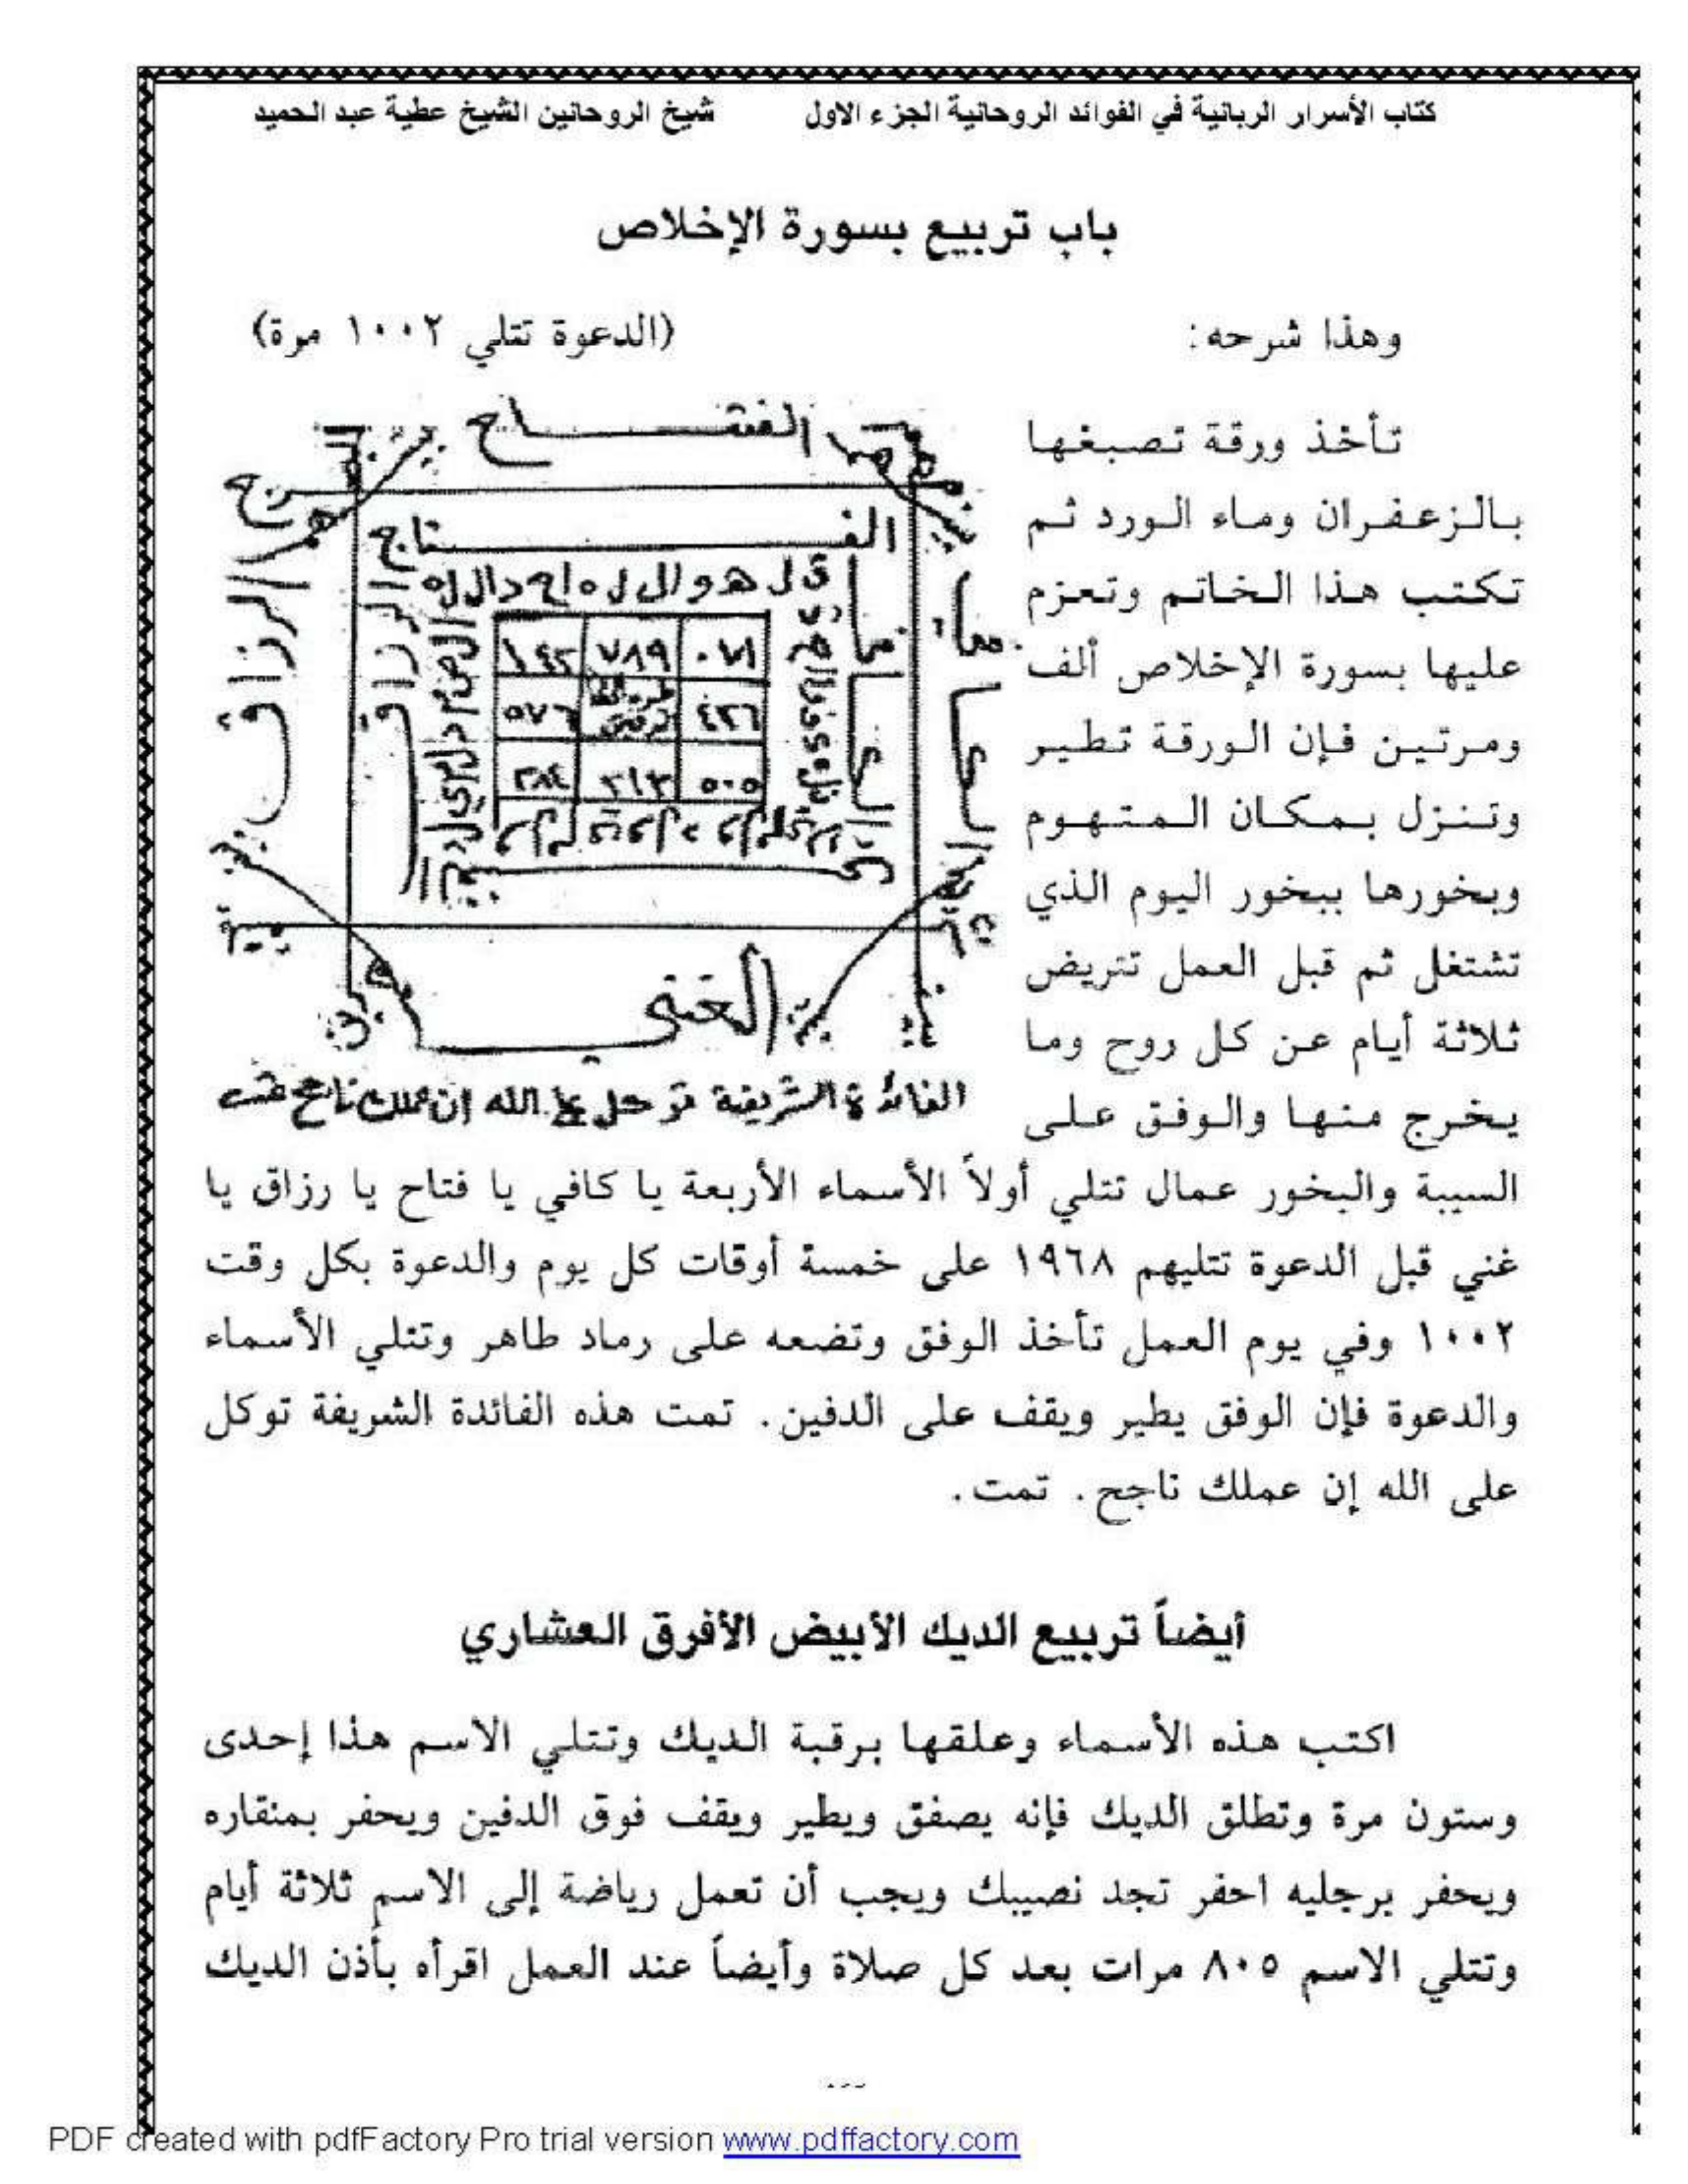 كتاب الأسرار الربانية في الفوائد الروحانية الجزء الاول شيخ الروحانين الشيخ عطية عبد الحميد
باب تربيع بسورة الإخلاص
وهذا شرحه: (الدعوة تتلي ١٠٠٢ مرة)
تأخذ ورقة تصبغها
بالزعفران وماء الورد ثم
تكتب هذا الخاتم وتعزم
عليها بسورة الإخلاص ألف
ومرتين فإن الورقة تطير
وتنزل بمكان المتهوم
وبخورها ببخور اليوم الذي
تشتغل ثم قبل العمل تتريض
ثلاثة أيام عن كل روح وما
يخرج منها والوفق على
الفتاح
الفتاح
الرزاق
الرزاق
قل هو الل
٧٨٩
٥٧٦
٥٠٥
الغني
الفائدة الشريفة الله ان عملك ناجح تمت
السيبة والبخور عمال تتلي أولاً الأسماء الأربعة يا كافي يا فتاح يا رزاق يا
غني قبل الدعوة تتليهم ١٩٦٨ على خمسة أوقات كل يوم والدعوة بكل وقت
١٠٠٢ وفي يوم العمل تأخذ الوفق وتضعه على رماد طاهر وتتلي الأسماء
والدعوة فإن الوفق يطير ويقف على الدفين. تمت هذه الفائدة الشريفة توكل
على الله إن عملك ناجح. تمت.
أيضاً تربيع الديك الأبيض الأفرق العشاري
اكتب هذه الأسماء وعلقها برقبة الديك وتتلي الاسم هذا إحدى
وستون مرة وتطلق الديك فإنه يصفق ويطير ويقف فوق الدفين ويحفر بمنقاره
ويحفر برجليه احفر تجد نصيبك ويجب أن تعمل رياضة إلى الاسم ثلاثة أيام
وتتلي الاسم ٨٠٥ مرات بعد كل صلاة وأيضاً عند العمل اقرأه بأذن الديك
PDF created with pdfFactory Pro trial version www.pdffactory.com